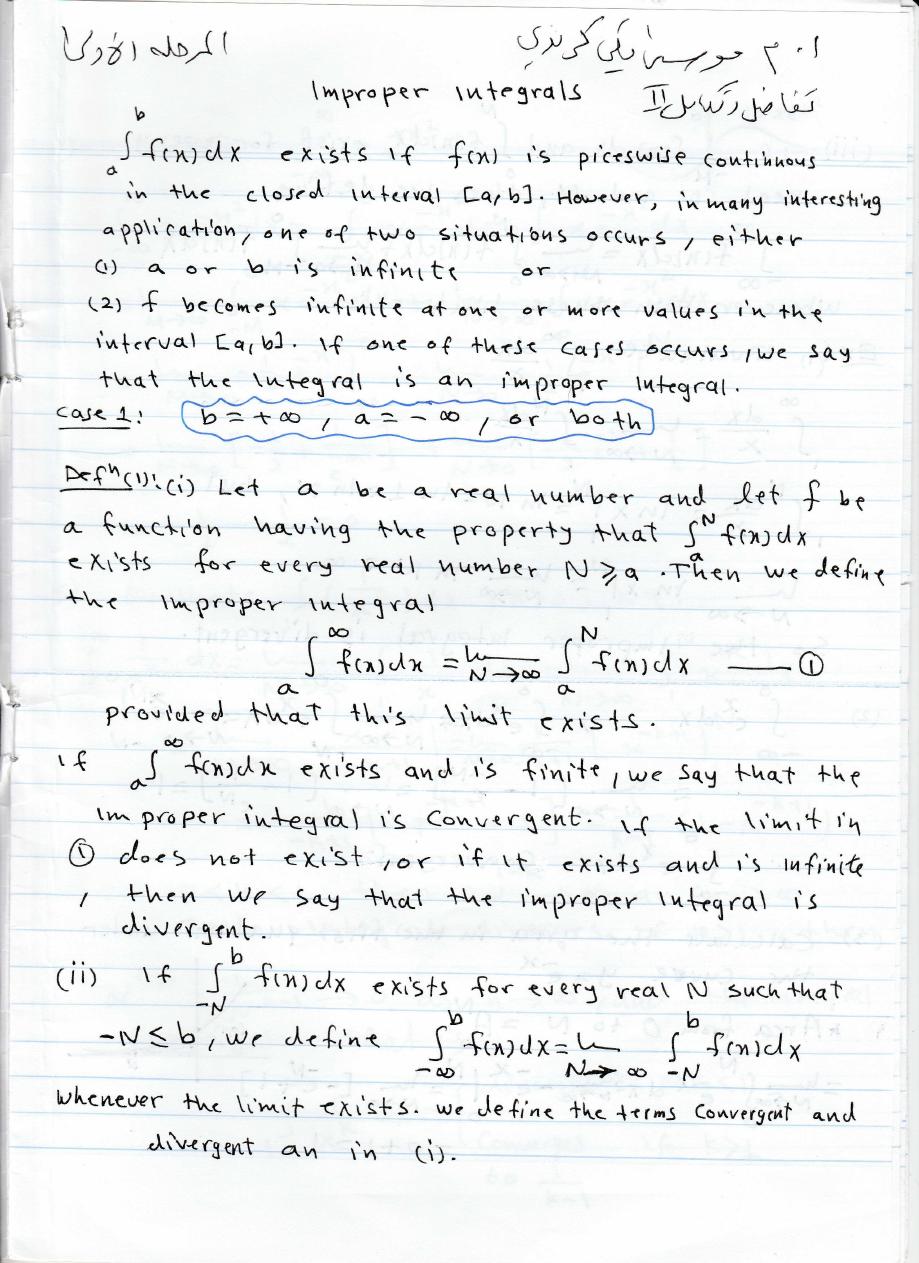 المرحله الأولى
تفاضل وتكامل II
Improper Integrals
∫_a^b f(x) dx exists if f(x) is piceswise continuous
in the closed interval [a,b]. However, in many interesting
application, one of two situations occurs, either
(1) a or b is infinite or
(2) f becomes infinite at one or more values in the
interval [a,b]. If one of these cases occurs, we say
that the Integral is an improper Integral.
Case 1: b = +∞, a = -∞, or both
Defⁿ(1): (i) Let a be a real number and let f be
a function having the property that ∫_a^N f(x) dx
exists for every real number N ≥ a. Then we define
the Improper integral
∫_a^∞ f(x) dx = lim_{N→∞} ∫_a^N f(x) dx —— ①
provided that this limit exists.
if ∫_a^∞ f(x) dx exists and is finite, we say that the
Improper integral is Convergent. If the limit in
① does not exist, or if it exists and is infinite
, then we say that the improper Integral is
divergent.
(ii) If ∫_{-N}^b f(x) dx exists for every real N such that
-N ≤ b, we define ∫_{-∞}^b f(x) dx = lim_{N→∞} ∫_{-N}^b f(x) dx
whenever the limit exists. we define the terms Convergent and
divergent an in (i).